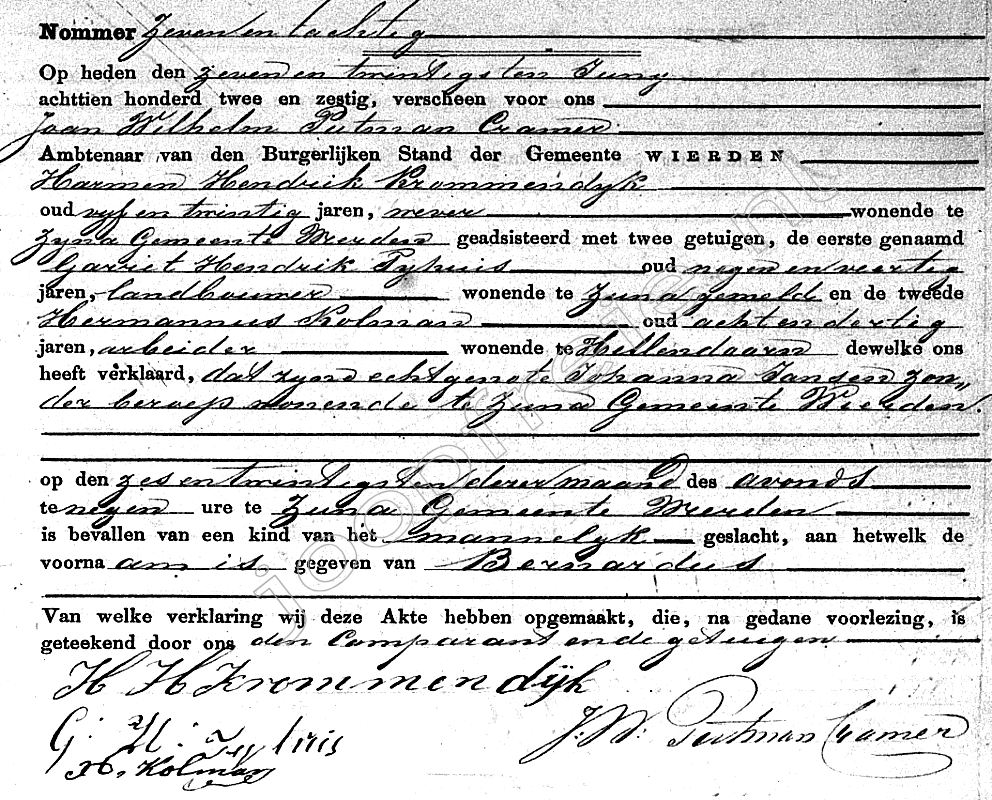 Nommer Zeven en tachtig
Op heden den zeven en twintigsten Juny
achttien honderd twee en zestig, verscheen voor ons
Joan Wilhelm Putman Cramer
Ambtenaar van den Burgerlijken Stand der Gemeente WIERDEN
Harmen Hendrik Krommendyk
oud vyf en twintig jaren, wever wonende te
Zuna Gemeente Wierden geadsisteerd met twee getuigen, de eerste genaamd
Garriet Hendrik Tyhuis oud negen en veertig
jaren, landbouwer wonende te Zuna gemeld en de tweede
Hermannus Kolman oud acht en dertig
jaren, arbeider wonende te Hellendoorn dewelke ons
heeft verklaard, dat zyne echtgenote Johanna Jansen zon„
der beroep wonende te Zuna Gemeente Wierden.
op den zes en twintigsten dezer maand des avonds
te negen ure te Zuna Gemeente Wierden
is bevallen van een kind van het mannelyk geslacht, aan hetwelk de
voorna am is gegeven van Bernardus
Van welke verklaring wij deze Akte hebben opgemaakt, die, na gedane voorlezing, is
geteekend door ons den Comparant en de getuigen
H H Krommendijk
G. H. Tyhuis J. W. Putman Cramer
H. Kolman